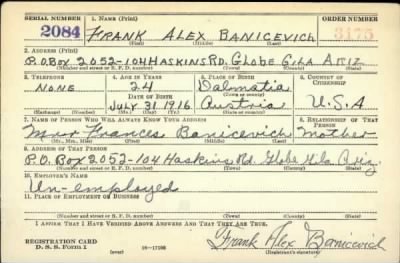 SERIAL NUMBER 1. NAME (Print) ORDER NUMBER
2084 FRANK ALEX BANICEVICH 3175
(First) (Middle) (Last)
2. ADDRESS (Print)
P.O. BOX 2052-104 HASKINS RD. GLOBE GILA ARIZ
(Number and street or R. F. D. number) (Town) (County) (State)
3. TELEPHONE 4. AGE IN YEARS 5. PLACE OF BIRTH 6. COUNTRY OF CITIZENSHIP
NONE 24 Dalmatia
(Town or county)
DATE OF BIRTH
JULY 31 1916 Austria U.S.A
(Exchange) (Number) (Mo.) (Day) (Yr.) (State or country)
7. NAME OF PERSON WHO WILL ALWAYS KNOW YOUR ADDRESS 8. RELATIONSHIP OF THAT PERSON
Mrs Frances Banicevich Mother
(Mr., Mrs., Miss) (First) (Middle) (Last)
9. ADDRESS OF THAT PERSON
P.O. Box 2052-104 Haskins Rd. Globe Gila Ariz.
(Number and street or R. F. D. number) (Town) (County) (State)
10. EMPLOYER'S NAME
Un-employed
11. PLACE OF EMPLOYMENT OR BUSINESS
(Number and street or R. F. D. number) (Town) (County) (State)
I AFFIRM THAT I HAVE VERIFIED ABOVE ANSWERS AND THAT THEY ARE TRUE.
REGISTRATION CARD
D. S. S. Form 1 (over) 16-17105 Frank Alex Banicevich
(Registrant's signature)